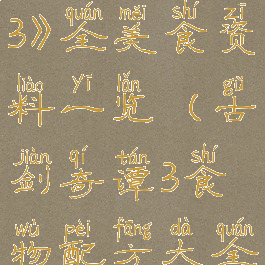 quán měi shí zī
3》全美食资
liào yī lǎn gǔ
料一览（古
jiàn qí tán shí
剑奇谭3食
wù pèi fāng dà quán
物配方大全